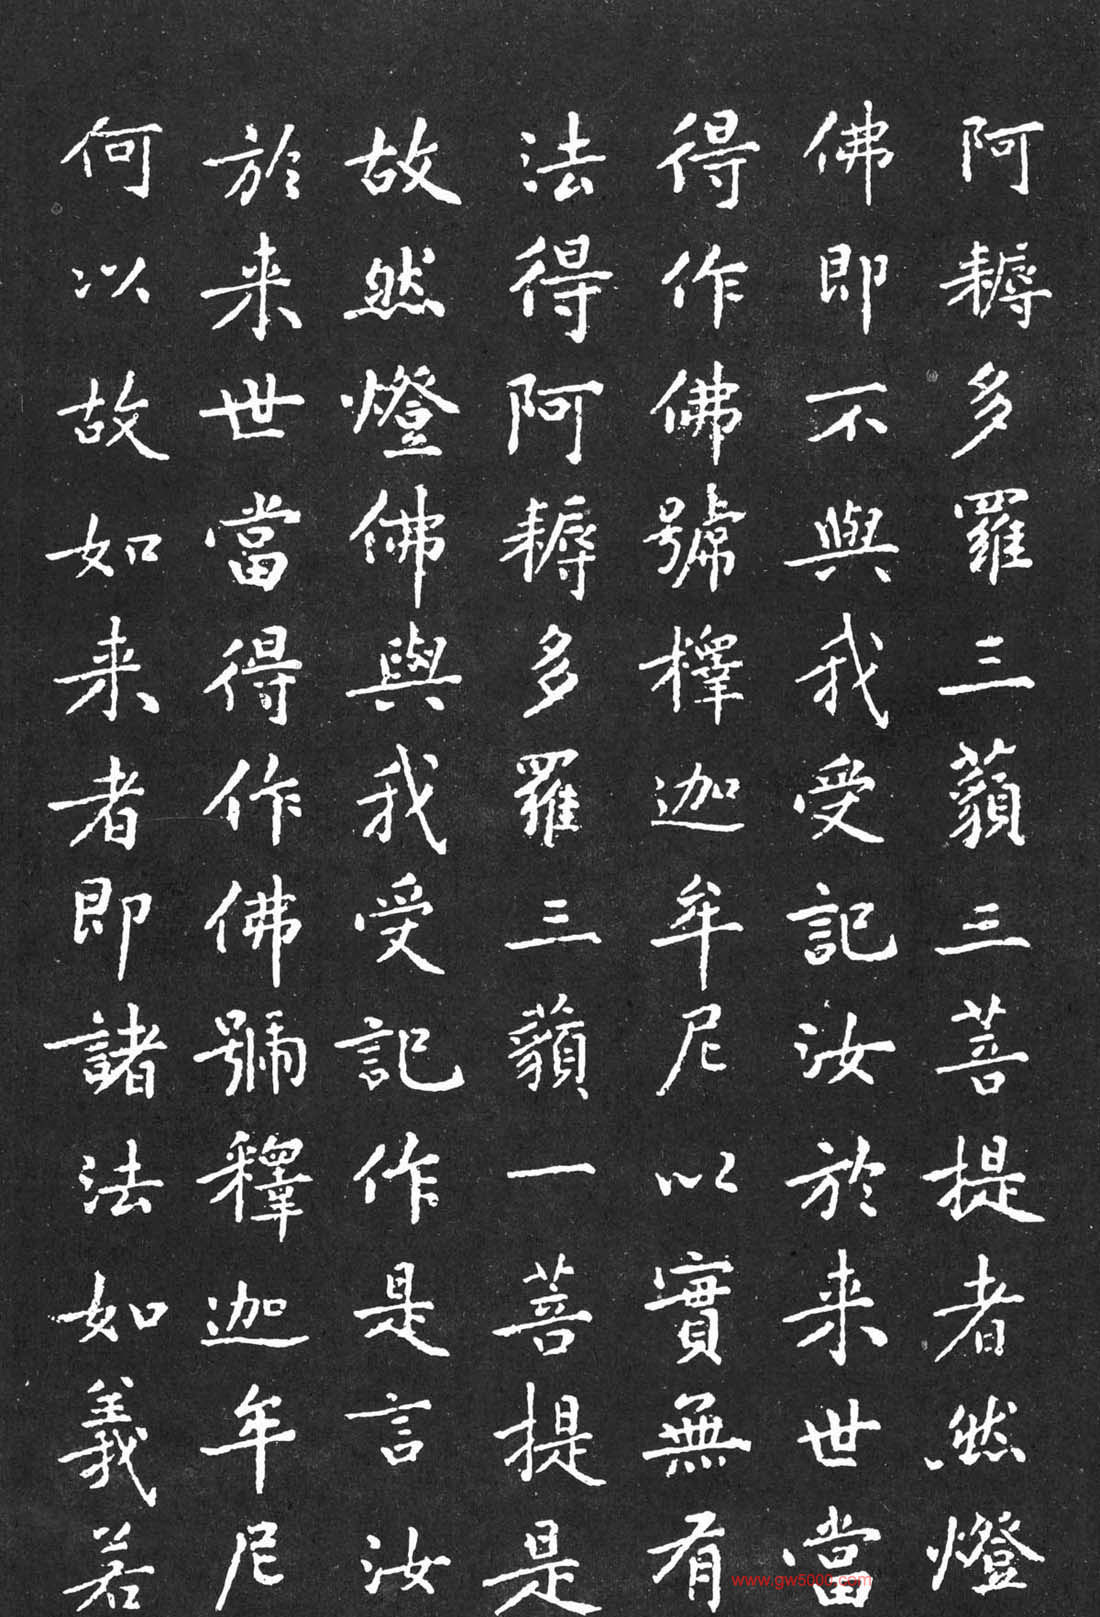 阿耨多羅三藐三菩提者然燈
佛即不與我受記汝於来世當
得作佛號釋迦牟尼以實無有
法得阿耨多羅三藐一菩提是
故然燈佛與我受記作是言汝
於来世當得作佛號釋迦牟尼
何以故如来者即諸法如義若
www.gw5000.com